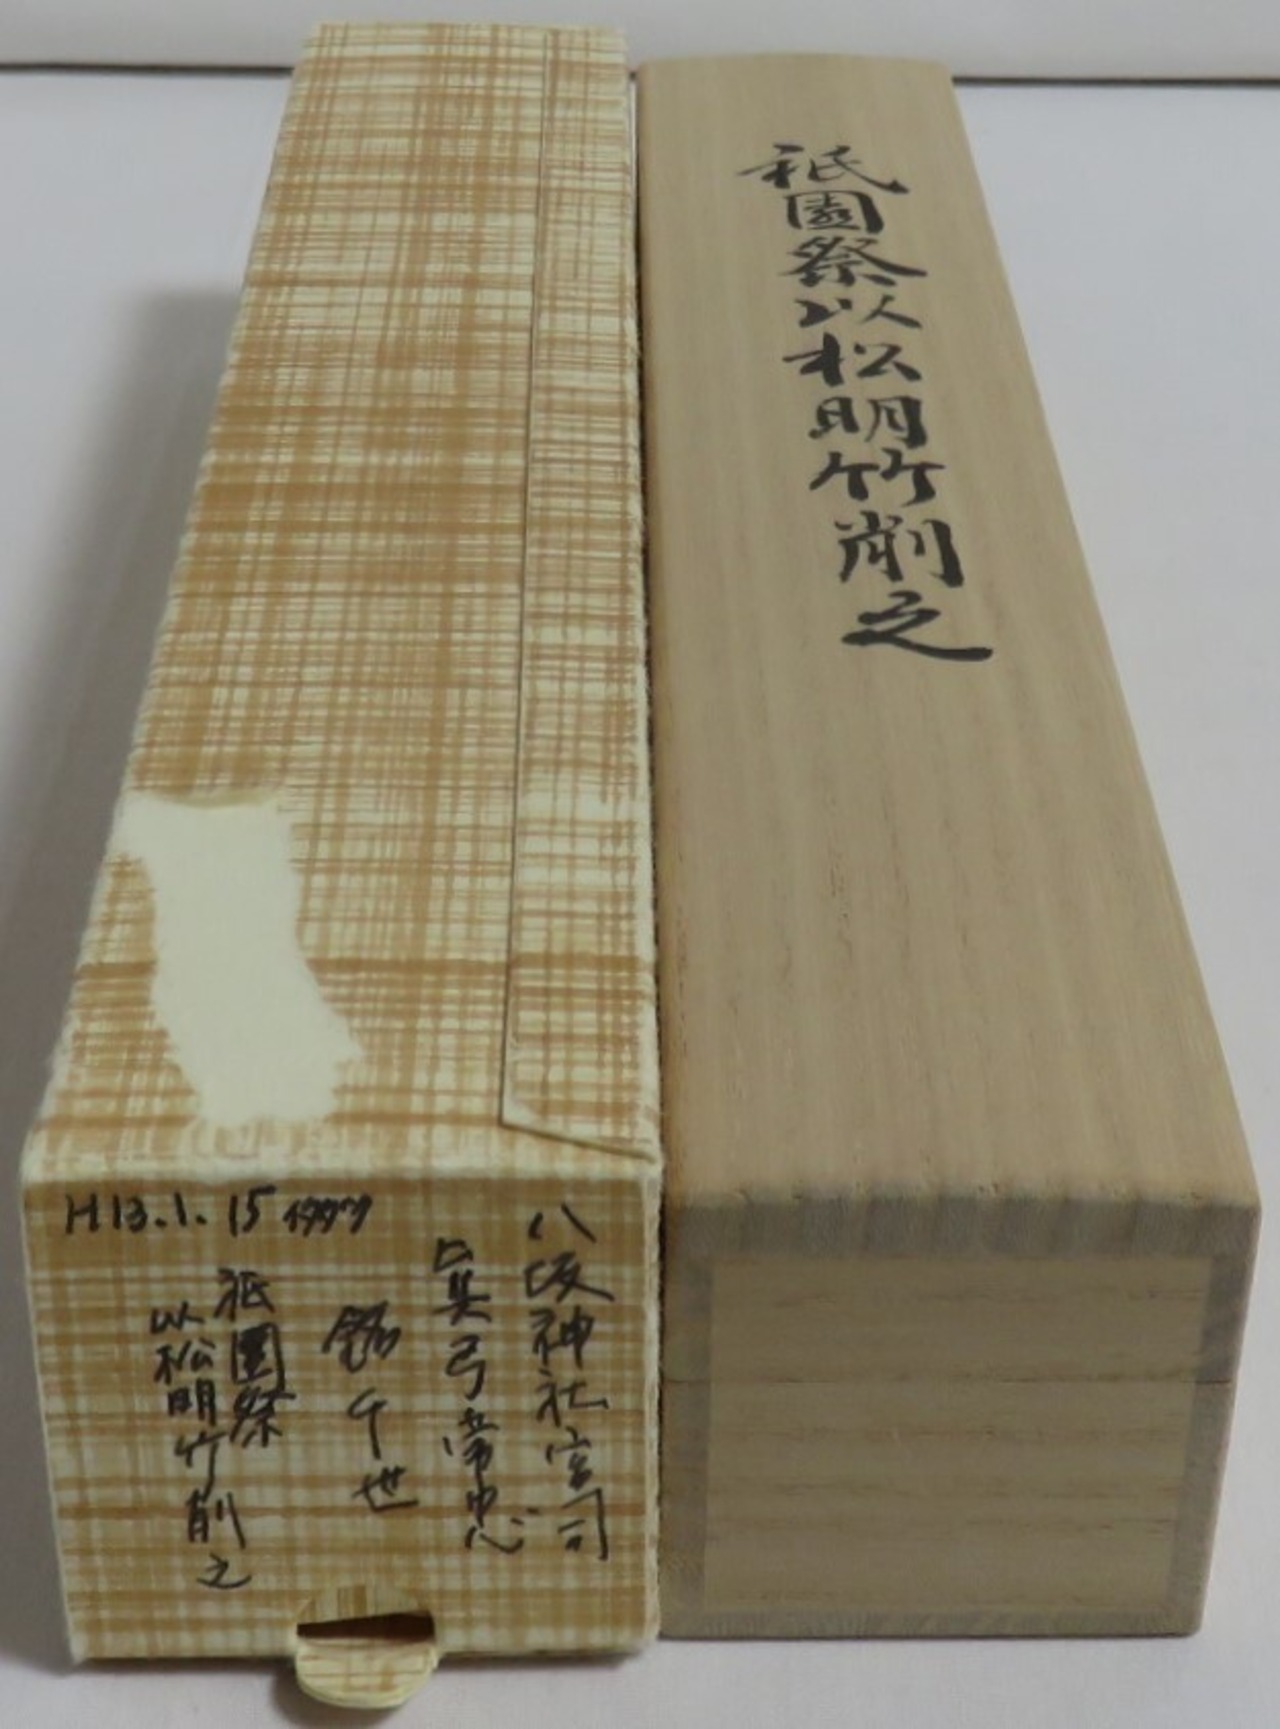 祇園祭以松明竹削之
H13.1.15
八坂神社宮司
真弓常忠
銘 千世
祇園祭
以松明竹削之